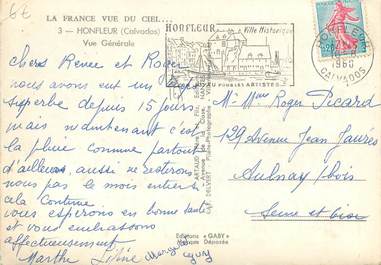 6€
LA FRANCE VUE DU CIEL...
3 — HONFLEUR (Calvados)
Vue Générale
HONFLEUR
Ville Historique
JOYAU POUR LES ARTISTES
HONFLEUR
1960
CALVADOS
Chers Renée et Roger
nous avons eu un
superbe depuis 15 jours
mais maintenant c'est
la pluie comme partout
d'ailleurs, aussi ne resterons
nous pas le mois entier si
cela continue
vous espérons en bonne santé
et vous embrassons
affectueusement
Marthe
Mr Mme Roger Picard
129 Avenue Jean Jaurès
Aulnay s/bois
Seine et oise
Editions "GABY"
Marque Déposée